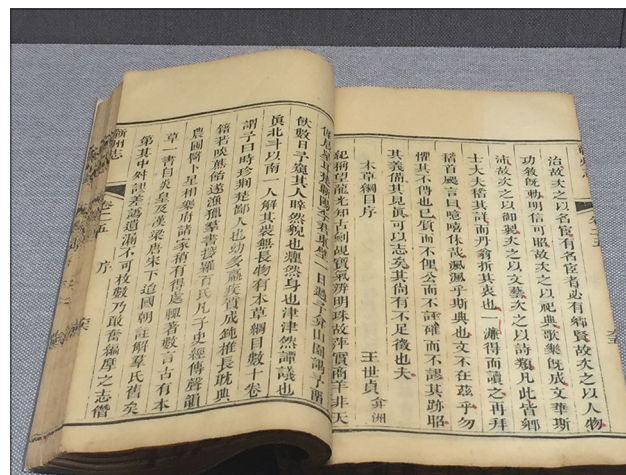 治故次之以名宦有名宦者必有鄉賢故次之以人物
功敎旣敷明信可昭故次之以祀典歌樂旣成文華斯
沛故次之以御製次之以文藝次之以詩類凡此皆鄉
士大夫稽其詳而丹翁折其衷也一濂得而讀之再拜
稽首颺言曰噫嘻休哉渢渢乎斯典也文不在茲乎勿
懼其不傳也已質而不俚公而不誣確而不謬其跡昭
其義備其見眞可以志矣其尙有不足徵也夫
本草綱目序
王世貞 弇洲
紀稱望龍光知古劒覘寶氣辨明珠故萍實商羊非天
陽李君東璧一日過予弇山園謁予留
飲數日予窺其人睟然貌也癯然身也津津然譚議也
眞北斗以南一人解其裝無長物有本草綱目數十卷
謂予曰時珍荊楚鄙人也幼多羸疾質成鈍椎長耽典
籍若啖蔗飴遂漁獵羣書搜羅百氏凡子史經傳聲韻
農圃醫卜星相樂府諸家稍有得處輒著數言古有本
草一書自炎皇及漢梁唐宋下迨國朝註解羣氏舊矣
第其中舛謬差譌遺漏不可枚數乃敢奮編摩之志僭
蘄州志 卷二五 序